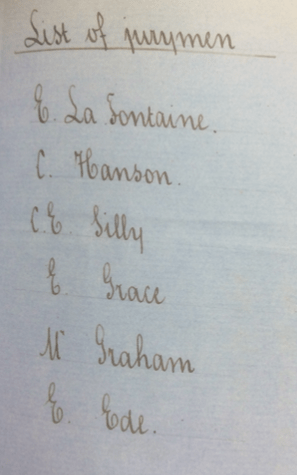 List of jurymen
E. La Fontaine.
C. Hanson.
C.E. Silly
E. Grace
Mr Graham
E. Ede.